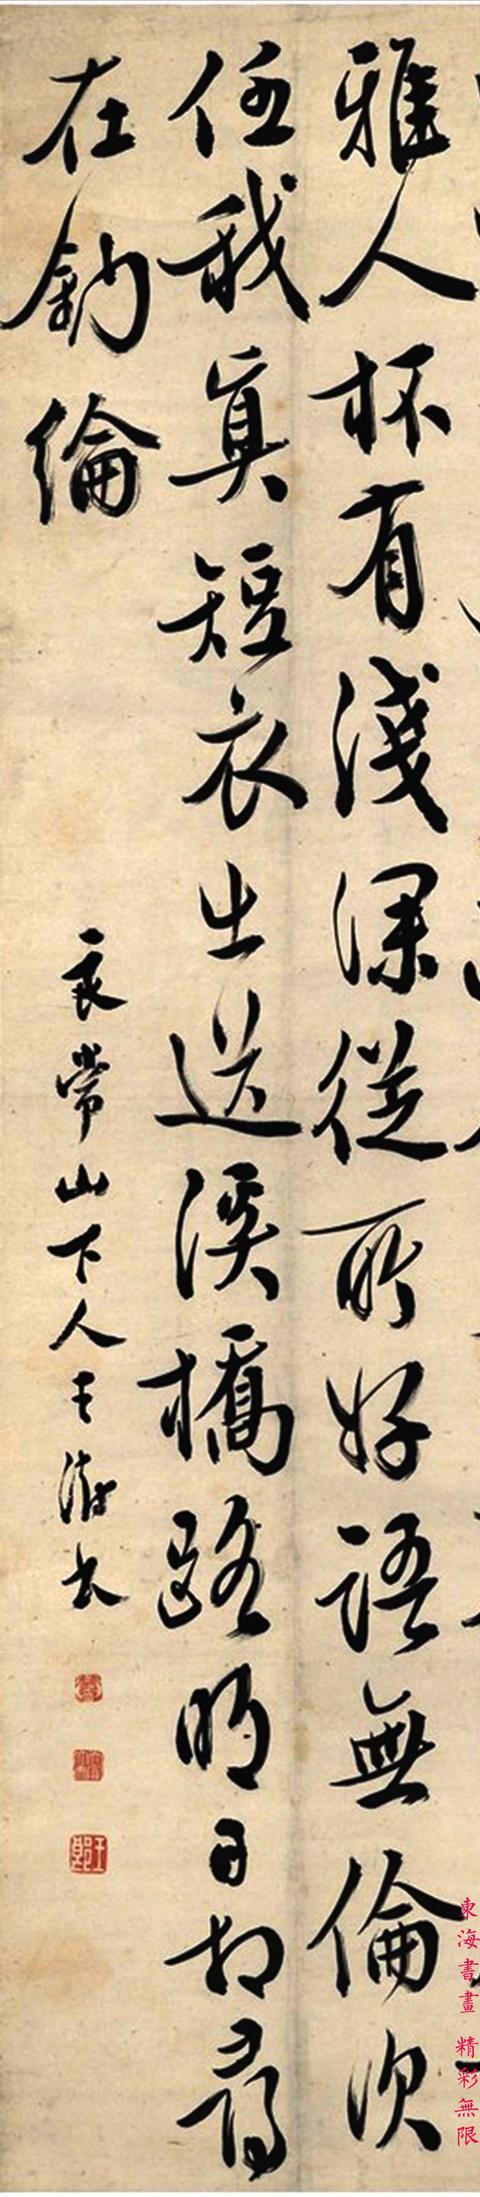 雅人杯有淺深從所好語無倫次
任我真短衣出送溪橋路明日相尋
在釣綸
良常山下人王澍書
王澍
東海書畫 精彩無限